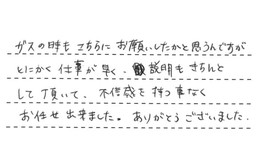 ガスの時も こちらに お願いしたかと思うんですが
とにかく仕事が早く、説明もきちんと
して頂いて、不信感を持つ事なく
お任せ出来ました。ありがとうございました.